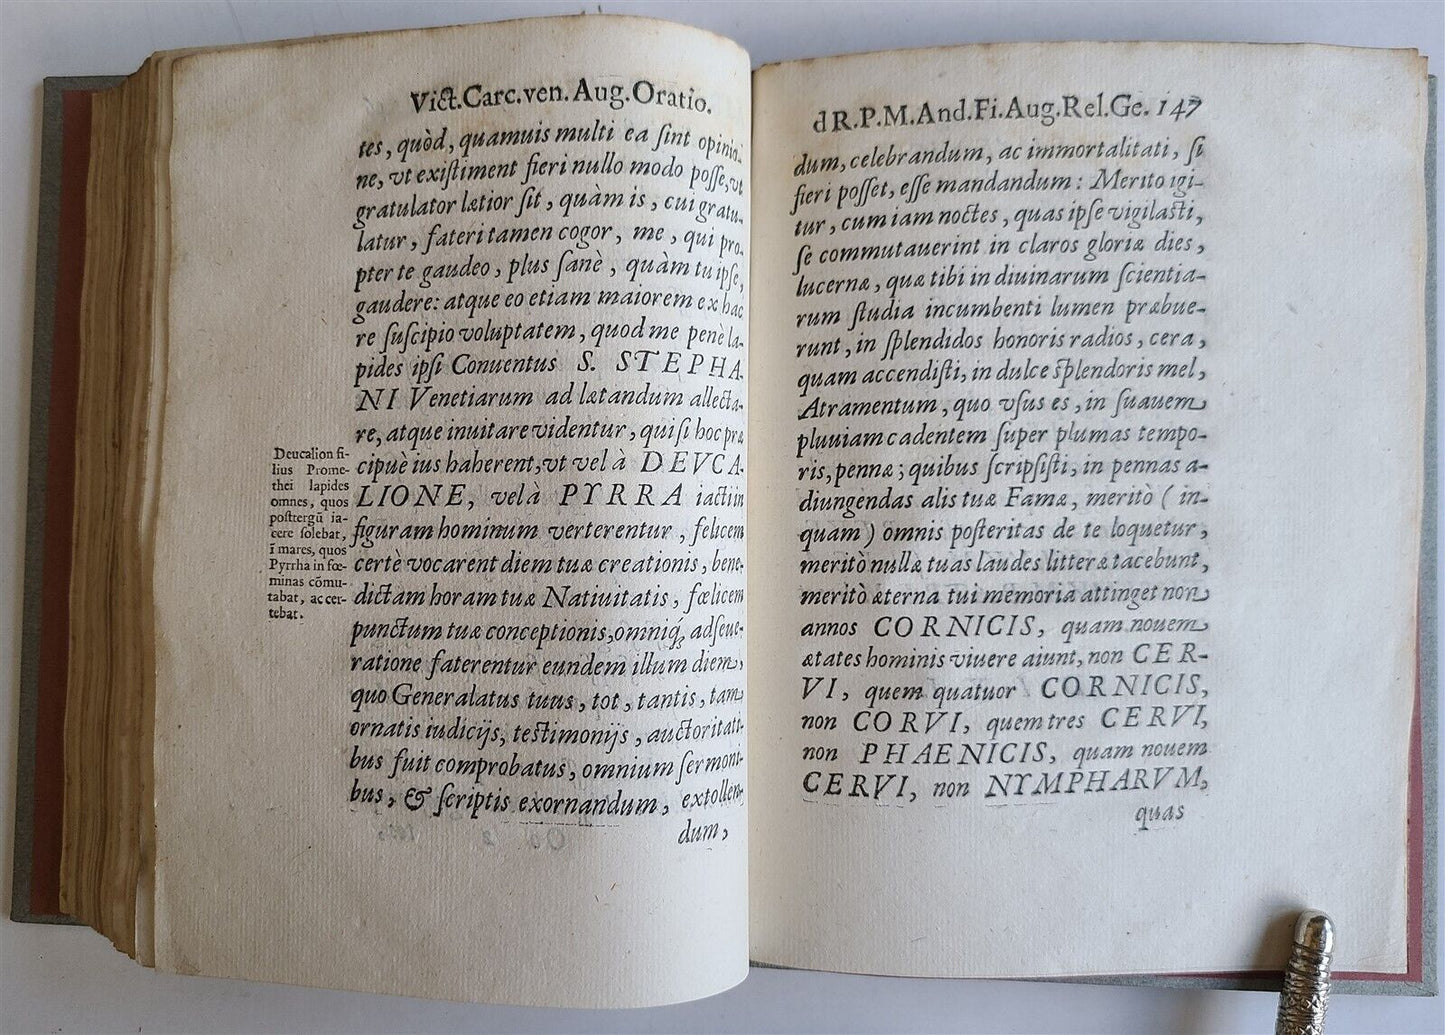 Vict.Carc.ven.Aug.Oratio.
tes, quòd, quamuis multi ea ſint opinio-
ne, vt exiſtiment fieri nullo modo poſſe, vt
gratulator lætior ſit, quàm is, cui gratu-
latur, fateri tamen cogor, me, qui pro-
pter te gaudeo, plus ſanè, quàm tu ipſe,
gaudere: atque eo etiam maiorem ex hac
re ſuſcipio voluptatem, quod me penè la-
pides ipſi Conuentus S. STEPHA-
NI Venetiarum ad lætandum allecta-
re, atque inuitare videntur, qui ſi hoc præ
cipuè ius haberent, vt vel à DEVCA-
LIONE, vel à PYRRA iacti in
figuram hominum verterentur, felicem
certè vocarent diem tuæ creationis, bene-
dictam horam tuæ Natiuitatis, fœlicem
punctum tuæ conceptionis, omniq́; adſeue-
ratione faterentur eundem illum diem,
quo Generalatus tuus, tot, tantis, tam
ornatis iudicijs, teſtimonijs, auctoritati-
bus fuit comprobatus, omnium ſermoni-
bus, & ſcriptis exornandum, extollen-
dum,
Deucalion fi-
lius Prome-
thei lapides
omnes, quos
poſttergū ia-
cere ſolebat,
ī mares, quos
Pyrrha in fœ-
minas cōmu-
tabat, ac cer-
tebat.
d R.P.M.And.Fi.Aug.Rel.Ge. 147
dum, celebrandum, ac immortalitati, ſi
fieri poſſet, eſſe mandandum: Merito igi-
tur, cum iam noctes, quas ipſe vigilaſti,
ſe commutauerint in claros gloriæ dies,
lucernæ, quæ tibi in diuinarum ſcientia-
rum ſtudia incumbenti lumen præbue-
runt, in ſplendidos honoris radios, cera,
quam accendiſti, in dulce ſplendoris mel,
Atramentum, quo vſus es, in ſuauem
pluuiam cadentem ſuper plumas tempo-
ris, pennæ; quibus ſcripſiſti, in pennas a-
diungendas alis tuæ Famæ, meritò (in-
quam) omnis poſteritas de te loquetur,
meritò nullæ tuas laudes litteræ tacebunt,
meritò æterna tui memoria attinget non
annos CORNICIS, quam nouem
ætates hominis viuere aiunt, non CER-
VI, quem quatuor CORNICIS,
non CORVI, quem tres CERVI,
non PHAENICIS, quam nouem
CERVI, non NYMPHARVM,
quas